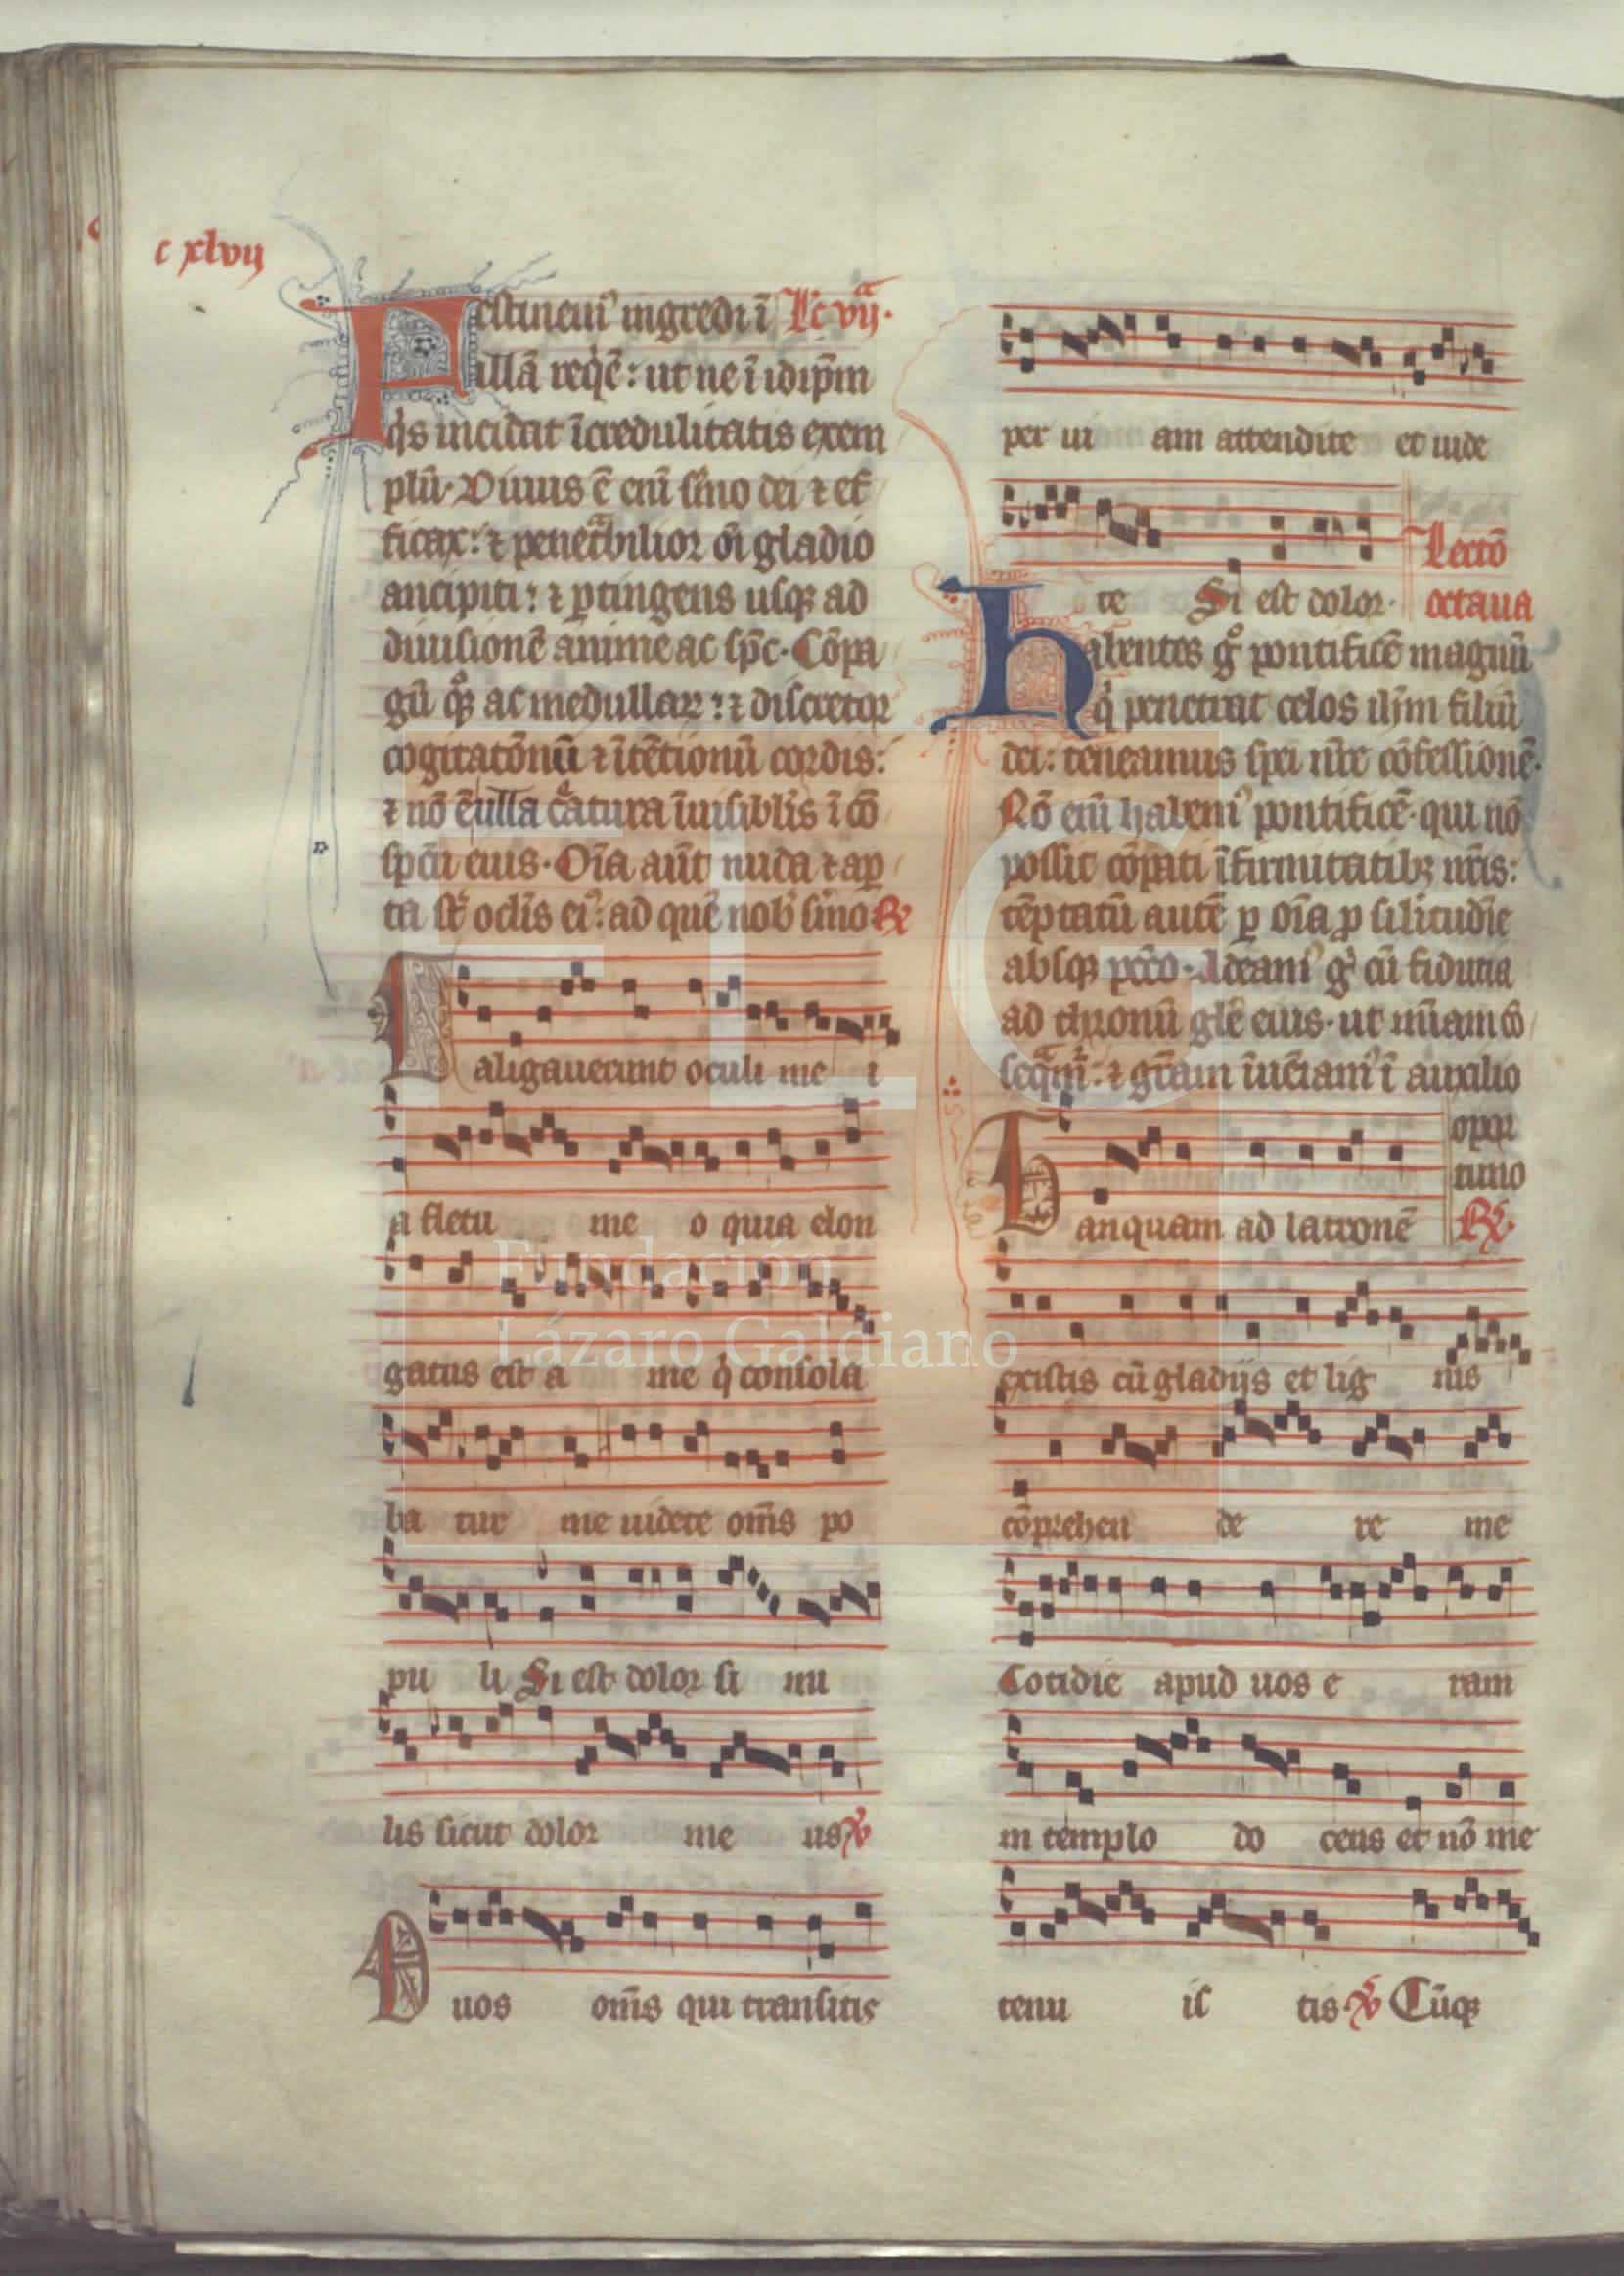 c xlvij
Festinem᷒ ingredi ī Lc vijᵃ.
illā reqͥē: ut ne ī idip̄m
qͥs incidat īcredulitatis exem
plū. Viuus ē eni᷑ s̄mo dei ⁊ ef
ficax: ⁊ penetᵃbilior ōi gladio
ancipiti: ⁊ ꝑtingens usqꝫ ad
diuisionē anime ac sp̄c. Cōpa
gū qͦꝫ ac medullaꝝ: ⁊ discretor
cogitatōnū ⁊ ītētionū cordis:
⁊ nō ē ulla c̄atura īuisiblis̄ ī cō
spc̄u eius. Oīa aūt nuda ⁊ aꝑ
ta st̄ oclis̄ ei᷒: ad quē nob̄ s̄mo ℞
Caligauerunt oculi me i
a fletu me o quia elon
gatus est a me qͥ consola
ba tur me uidete om̄s po
pu li Si est dolor si mi
lis sicut dolor me us ℣
O uos om̄s qui transitis
per ui am attendite et uide
te Si est dolor. Lectō
octaua
Habentes gͦ pontificē magnū
qͥ penetrat celos ih̄m filiū
dei: teneamus spei nr̄e cōfessionē.
Nō eni᷑ habem᷒ pontificē. qui nō
possit cōpati īfirmitatibꝫ nr̄is:
tēptatū autē ꝑ oīa ꝓ silitudīe
absqꝫ pctō. Adeam᷒ gͦ cū fiducia
ad thronū gl̄e eius. ut mi᷑am cō
seqᵃm᷒: ⁊ gr̄am īueniam᷒ ī auxilio
opor
tuno
Tanquam ad latronē ℞.
existis cū gladijs et lig nis
cōprehen de re me
Cotidie apud uos e ram
in templo do cens et nō me
tenu is tis ℣ Cūqꝫ
FLG
Fundación
Lázaro Galdiano